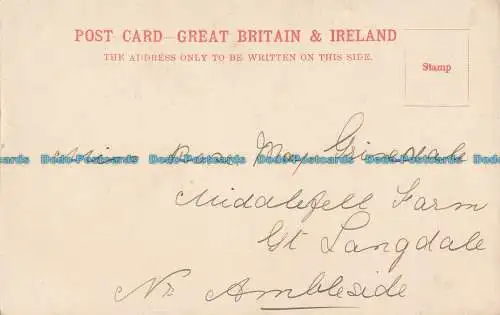 POST CARD—GREAT BRITAIN & IRELAND
THE ADDRESS ONLY TO BE WRITTEN ON THIS SIDE.
Stamp
Miss May Grisedale
Dodo-Postcards Dodo-Postcards Dodo-Postcards Dodo-Postcards
Middlefell Farm
Gt Langdale
Nr Ambleside